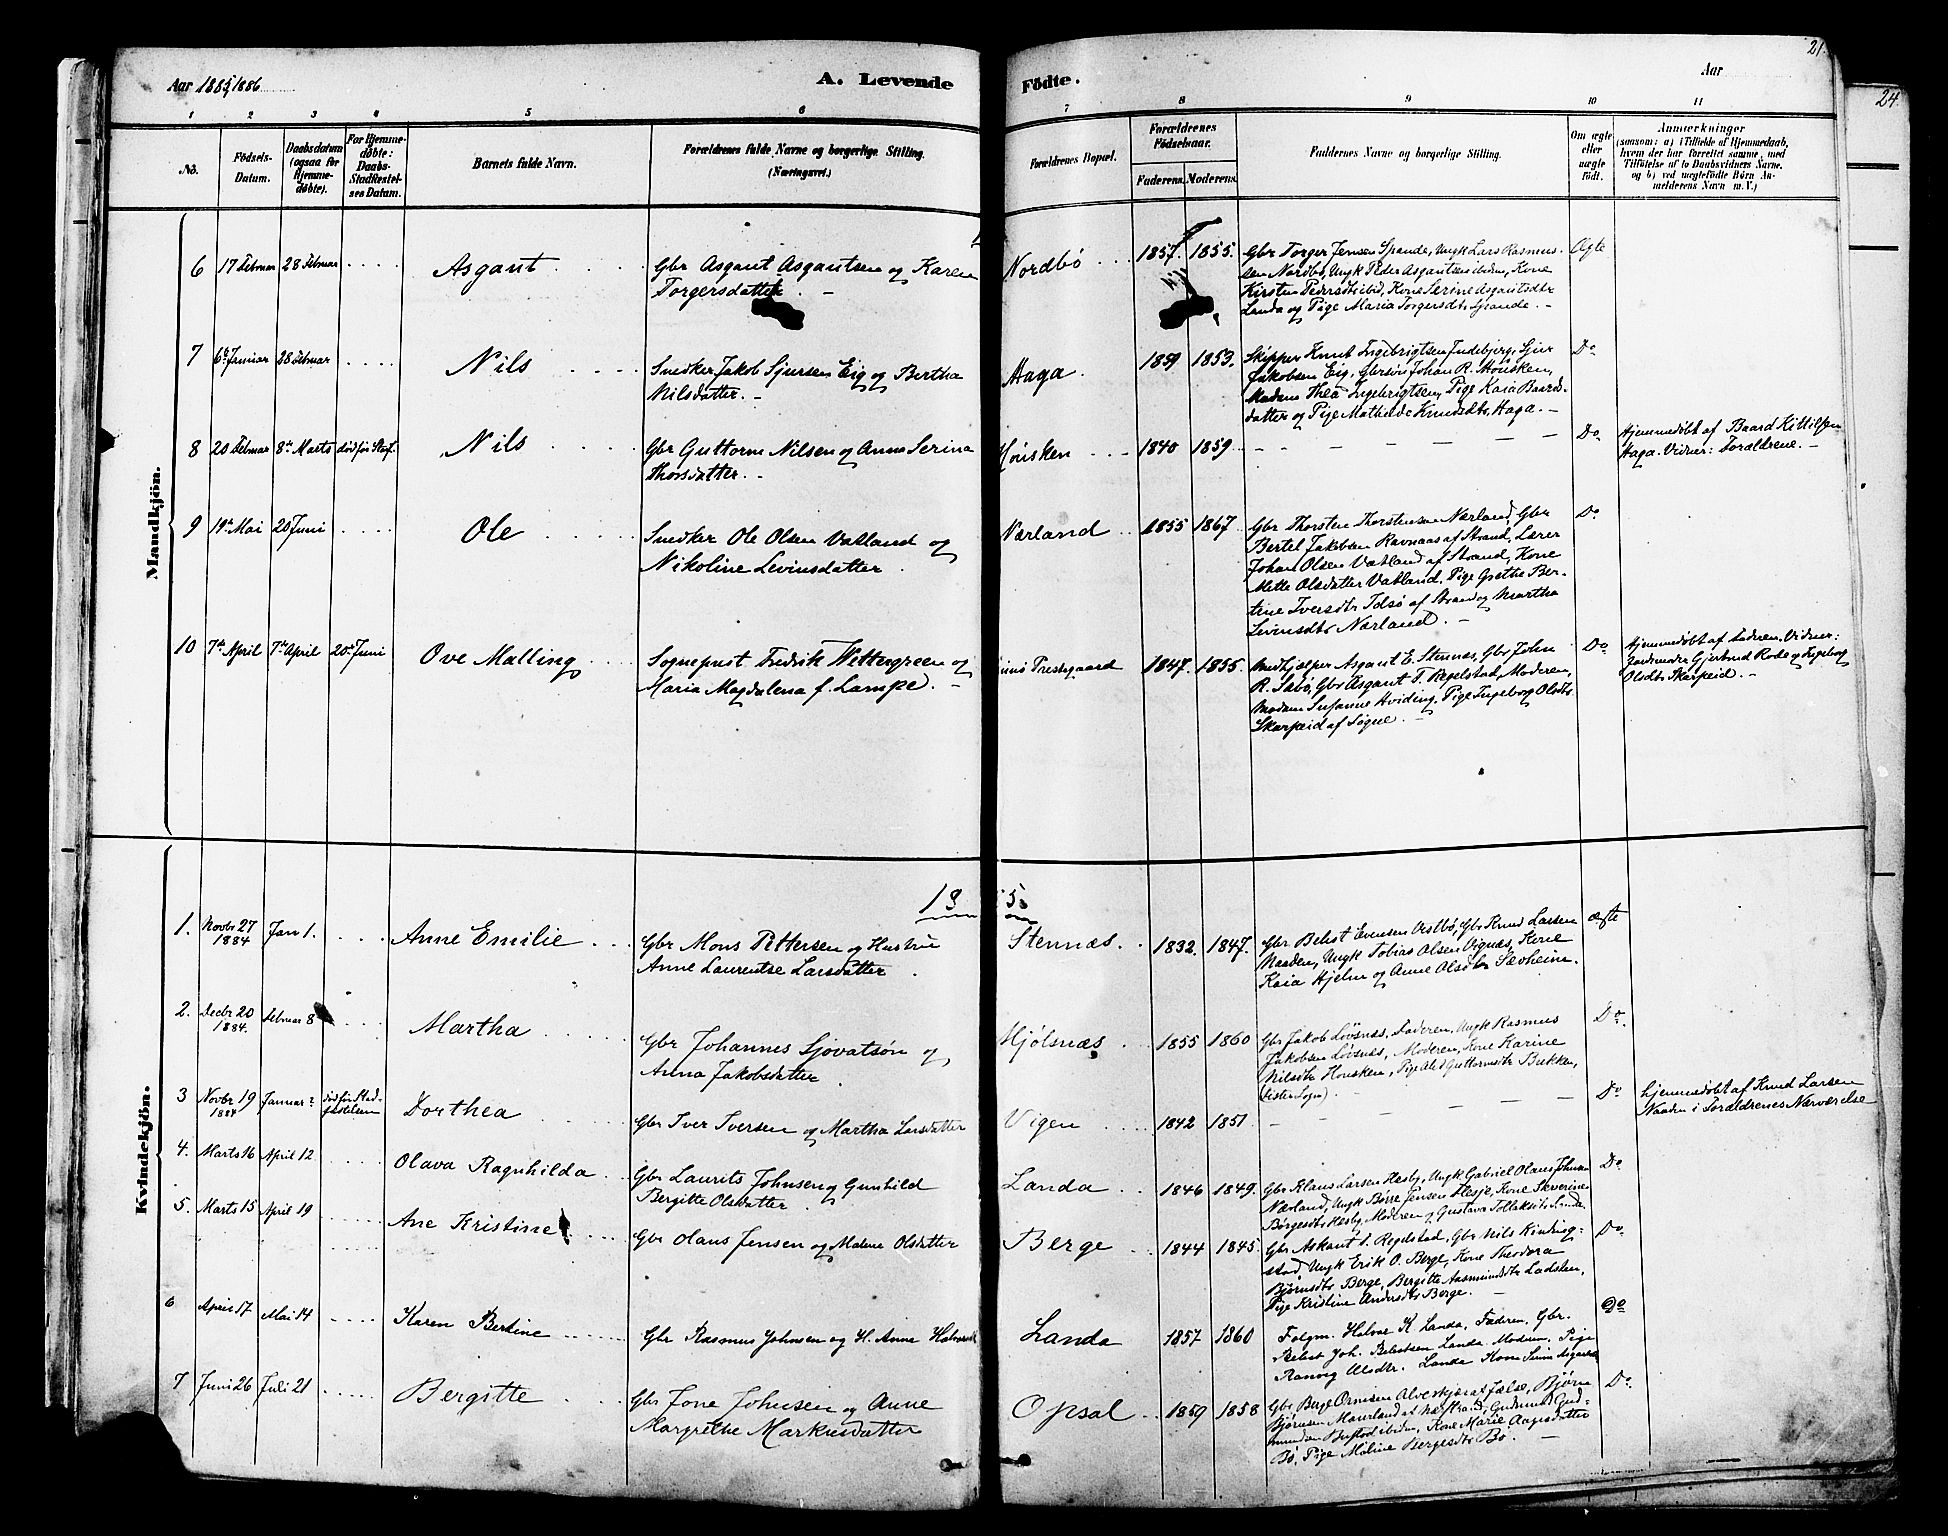 21.
24.
Aar 1885/1886
A. Levende
Fødte.
Aar
1 2 3 4 5 6 7 8 9 10 11
No.
Fødsels-
Datum.
Daabsdatum
(ogsaa for
Hjemme-
døbte).
For Hjemme-
døbte:
Daabs-
Stadfæstel-
ses Datum.
Barnets fulde Navn.
Forældrenes fulde Navne og borgerlige Stilling.
(Næringsvei.)
Forældrenes Bopæl.
Forældrenes
Fødselsaar.
Faderens. Moderens.
Faddernes Navne og borgerlige Stilling.
Om ægte
eller
uægte
født.
Anmærkninger
(saasom: a) i Tilfælde af Hjemmedaab,
hvem der har forrettet samme, med
Tilføielse af to Daabsvidners Navne,
og b) ved uægtefødte Børn An-
melderens Navn m. V.)
Mandkjön.
6 17 Februar 28 Februar Asgaut Gbr Asgaut Asgautsen og Karen
Torgersdatter. Nordbø 1857. 1855. Ægte
Gbr Torger Jensen Spande, Ungk Lars Rasmus-
sen Nordbø, Ungk Peder Asgautsen ibidm, Kone
Kirsten Pedersdtr ibid, Kone Serine Asgautsdtr
Landa og Pige Maria Torgersdtr Spande. -
7 6te Januar 28 Februar Nils Snedker Jakob Sjursen Eig og Bertha
Nilsdatter. - Haga. 1859 1853. Do
Skipper Knut Ingebrigtsen Indebjerg, Sjur
Jakobsen Eig, Gbrsøn Johan R. Housken,
Madam Thea Ingebrigtsen, Pige Kaia Baards-
datter og Pige Mathilde Knudsdtr Haga. -
8 20 Februar 8de Marts død før Stadf. Nils Gbr Guttorm Nilsen og Anna Serina
Thorsdatter. - Housken 1840 1859. Do
Hjemmedøbt af Baard Kittilsen
Haga. Vidner: Forældrene. -
9 19de Mai 20 Juni Ole Snedker Ole Olsen Vatland og
Nikoline Levinsdatter. Nærland 1855 1867. Do
Gbr Thorsten Thorstensen Nærland, Gbr
Bertel Jakobsen Ravnaas af Strand, Lærer
Johan Olsen Vatland af Strand, Kone
Mette Olsdatter Vatland. Pige Grethe Ber-
trine Iversdtr Idsø af Strand og Martha
Levinsdtr Nærland. -
10 7de April 7de April 20de Juni Ove Malling Sogneprest Fredrik Wettergreen og
Maria Magdalena f. Lampe. - Prestegaard 1847. 1855. Do
Medhjælper Asgaut E. Stennæs, Gbr John
R. Sæbø, Gbr Asgaut T. Regelstad, Moderen,
Madam Susanne Hviding, Pige Ingeborg Olsdtr
Skarpeid af Sogne. -
Hjemmedøbt af Faderen. Vidner:
Jordmoder Gjertrud Rode og Ingeborg
Olsdtr Skarpeid. -
Kvindekjön.
1885.
1. Novbr 27
1884 Jan 1. Anne Emilie Gbr Mons Pettersen og Hustru
Anne Laurentse Larsdatter. Stennæs. 1832. 1847. Ægte
Gbr Belest Evensen Østbø, Gbr Knud Larsen
Naaden, Ungk Tobias Olsen Vignæs, Kone
Kaia Hjelm og Anne Olsdtr Sævheim.
2. Decbr 20
1884. Februar 8 Martha Gbr Johannes Sjovatsøn og
Anna Jakobsdatter. Hjølsnæs 1855 1860 Do.
Gbr Jakob Løvsnæs, Faderen, Ungk Rasmus
Jakobsen Løvsnæs, Moderen, Kone Karine
Nilsdtr Housken, Pige Guttormsdtr Bukken,
3 Novbr 19
1884 Januar død før Stad-
fæstelsen Dorthea Gbr Iver Iversen og Martha Larsdatter Vigen 1842 1851 Do
Hjemmedøbt af Knud Larsen
Naaden i Forældrenes Nærværelse
4. Marts 16 April 12 Olava Ragnhilda Gbr Laurits Johnsen og Gunhild
Bergitte Olsdatter. Landa 1846 1849. Do
Gbr Klaus Larsen Hesby, Ungk Gabriel Olaus Johnsen
Nærland, Ungk Børre Jensen Flesje, Kone Severine
Børgesdtr Hesby, Moderen og Gustava Tollaksdtr Landa
5. Marts 15 April 19 Ane Kristine Gbr Olaus Jensen og Malene Olsdatter Berge 1844 1845. Do.
Gbr Askaut T. Regelstad, Gbr Nils Kinding-
stad, Ungk Erik O. Berge, Kone Theodora
Bjørnsdtr Berge, Bergitte Aasmundsdtr Ladsten,
Pige Kristine Andersdtr Berge.
6 April 17 Mai 14 Karen Bertine Gbr Rasmus Johnsen og H. Anne Halvorsdtr Landa 1857 1860 Do
Folgm. Halvor K. Landa, Faderen, Gbr.
Belest Joh. Belestsen Landa. Moderen. Pige
Ranveig Landa Kone
7 Juni 26 Juli 21 Bergitte Gbr Jone Johnsen og Anne
Margrethe Markusdatter Opsal 1859 1858 Do.
Gbr Berge Ormsen Alveskjær af Jelse, Bjørn
Bjørnsen Maurland af Nærstrand, Gudmund Gud-
mundsen Bustad ibidm, Kone Marie Aagesdatter
Bø, Pige Maline Bergesdtr Bø. -